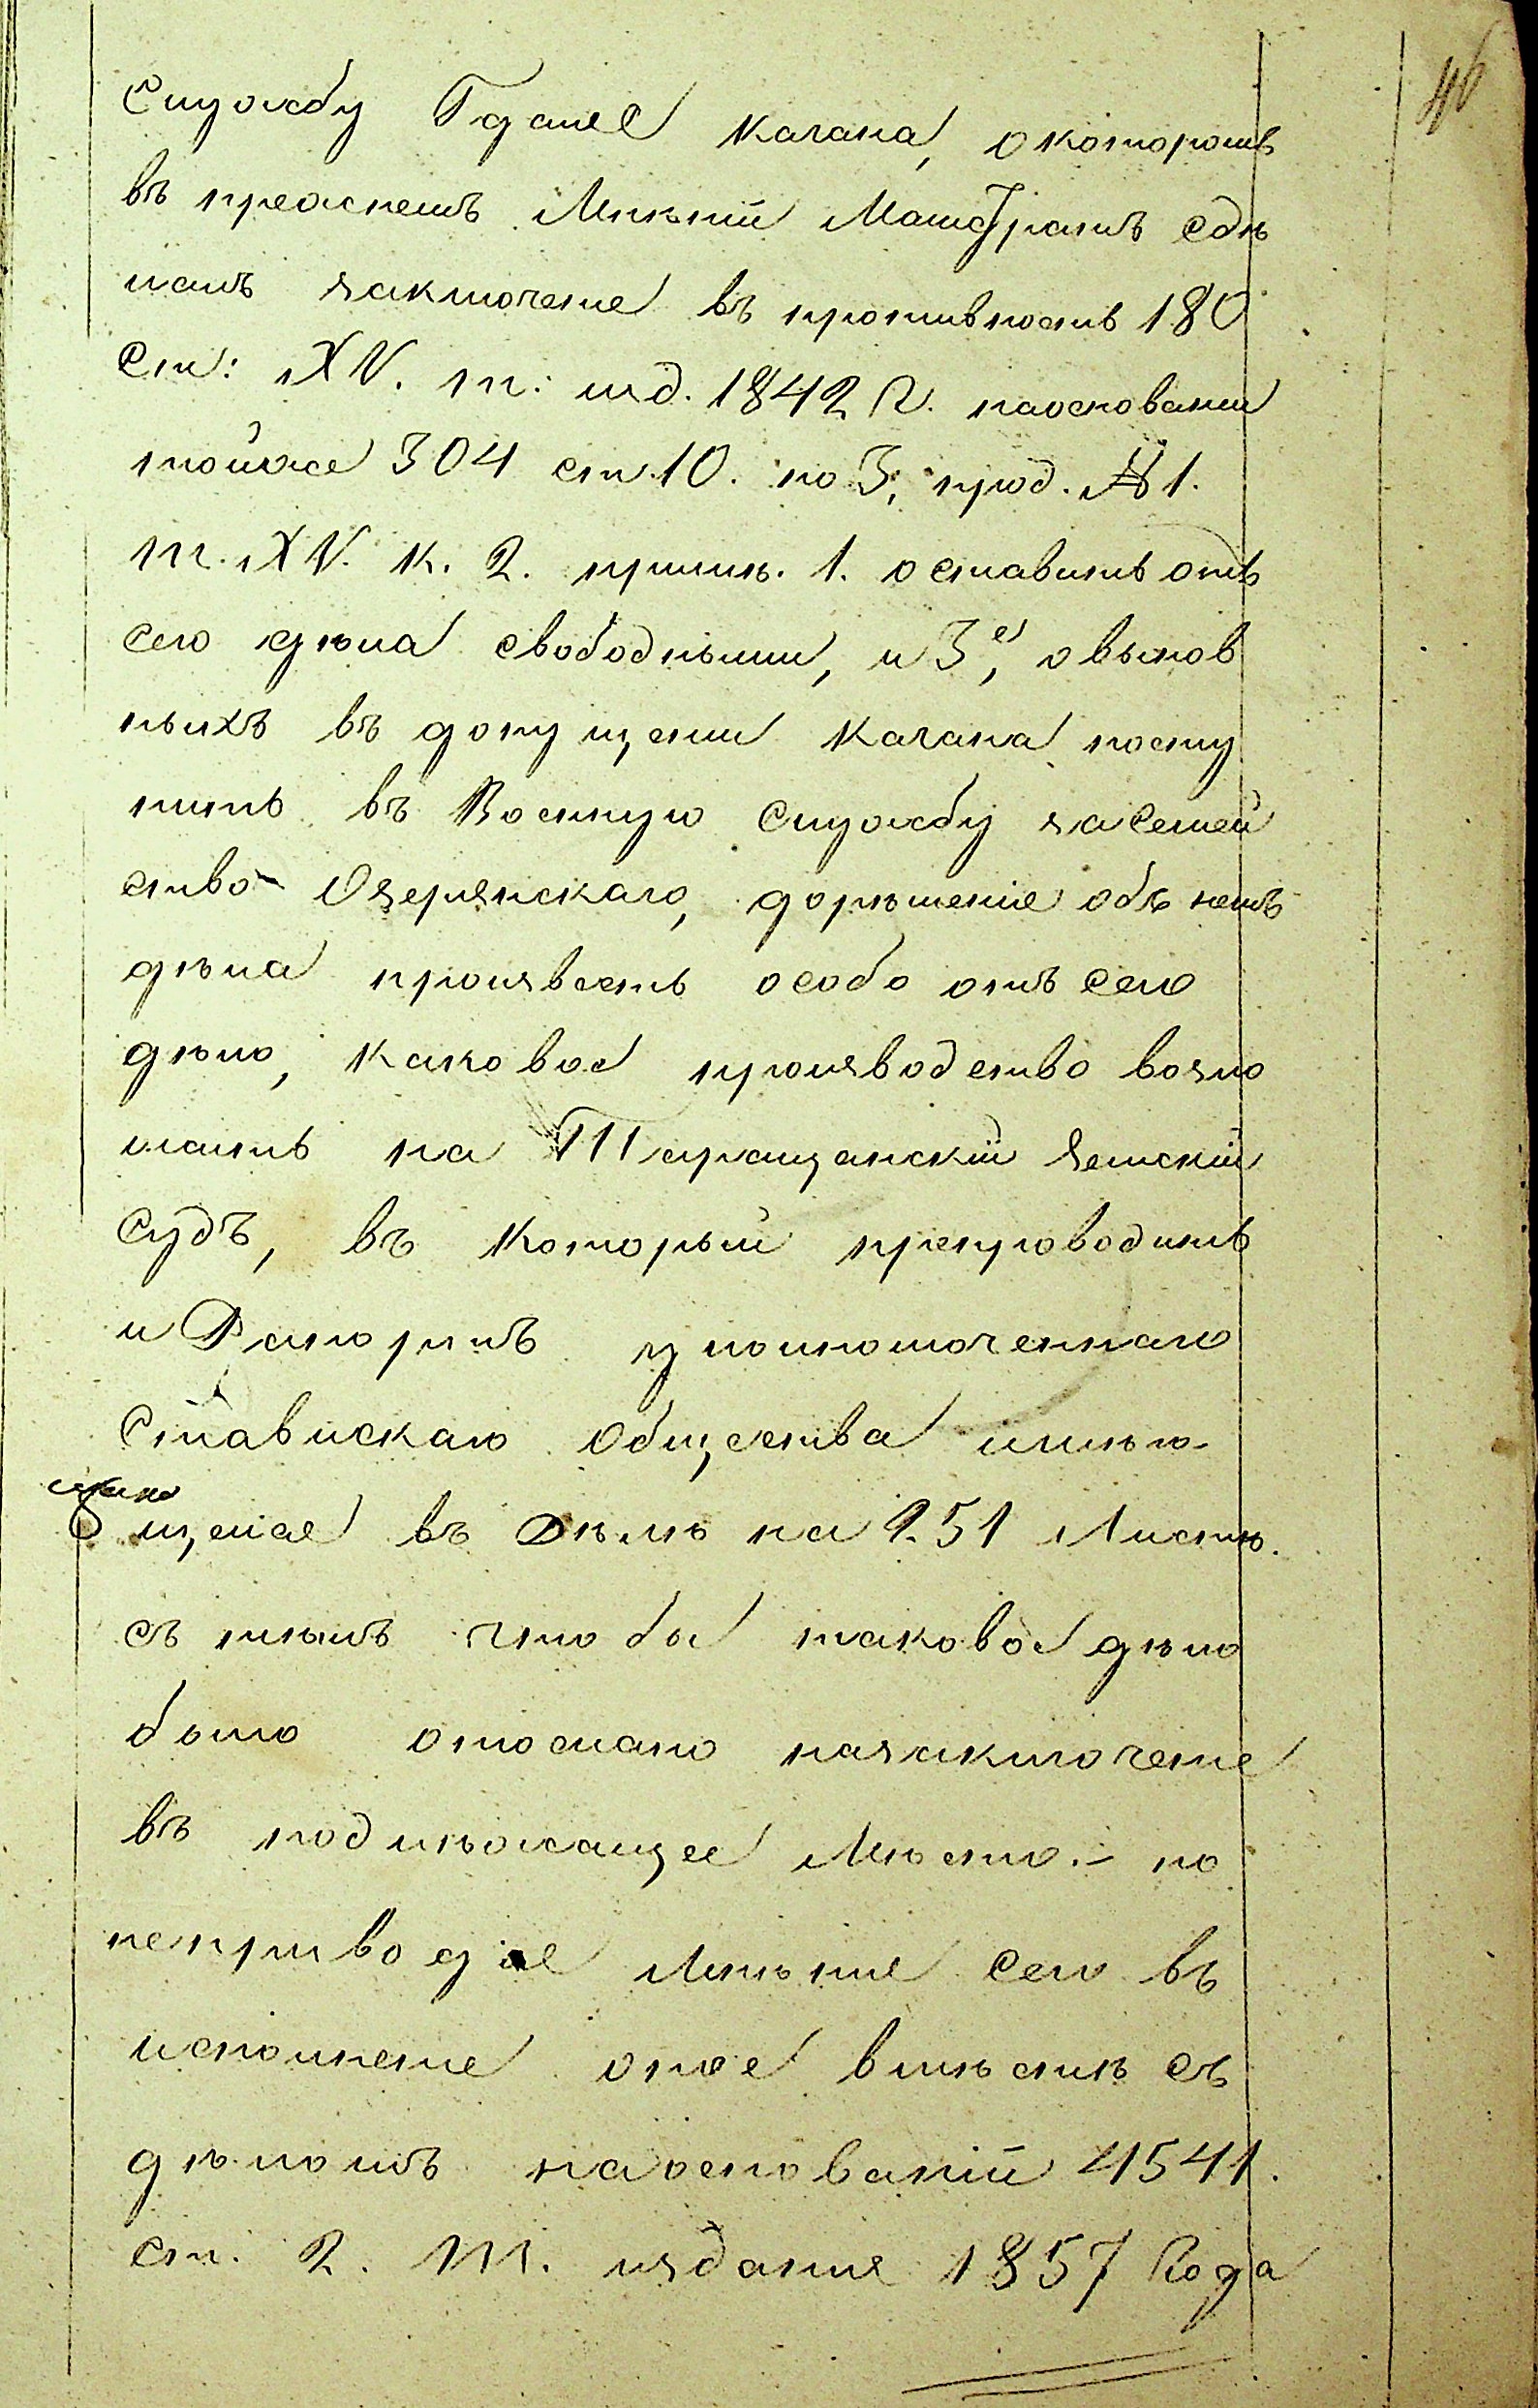 46
Службу Гдаль Качана, о которомъ
въ прежнемъ Мнѣнiи Магистратъ сдѣ
лалъ заключенiе въ противность 180
ст: XV. т: изд. 1842 г. наоснованiи
тойже 304 ст. 10. по 3, прод. 1.
т. XV. к. 2. примѣ. 1. оставить отъ
сего дѣла свободными, и 3е, о вынов
ныхъ въ допущенiи Качана посту
пить въ Военную Службу засемей
ство Озерянскаго, дорѣшенiе объ немъ
дѣла произвесть особо отъ сего
дѣло, каковое производство возло
жить на Таращанскiй Земскiй
Судъ, въ который препроводить
и уполномоченнаго
Ставискаго Общества имѣю-
щееся въ Дѣлѣ на 251 Листѣ.
съ тѣмъ что бы таковое дѣло
было отослано назаключенiе
въ подлѣжащее Мѣсто. – но
неприводя Мнѣнiе сего въ
исполненiе оное внѣсть съ
дѣломъ наоснованiй 4541.
ст. 2. т. изданiя 1857 Года